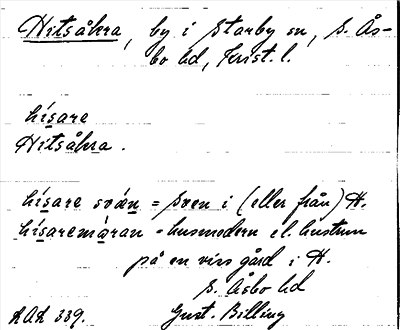 Hitsåkra, by i Starby sn, S. Ås-
bo hd, Krist. l.
hísare
Hitsåkra.
hísare sván = Sven i (eller från) H.
hísaremóran = husmodern el. hustrun
på en viss gård i H.
S. Åsbo hd
AAA 339. Gust. Billing